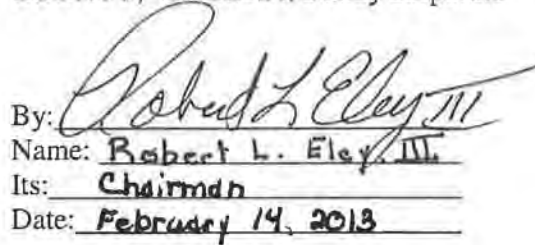 By: Robert L Eley III
Name: Robert L. Eley. III
Its: Chairman
Date: February 14, 2013